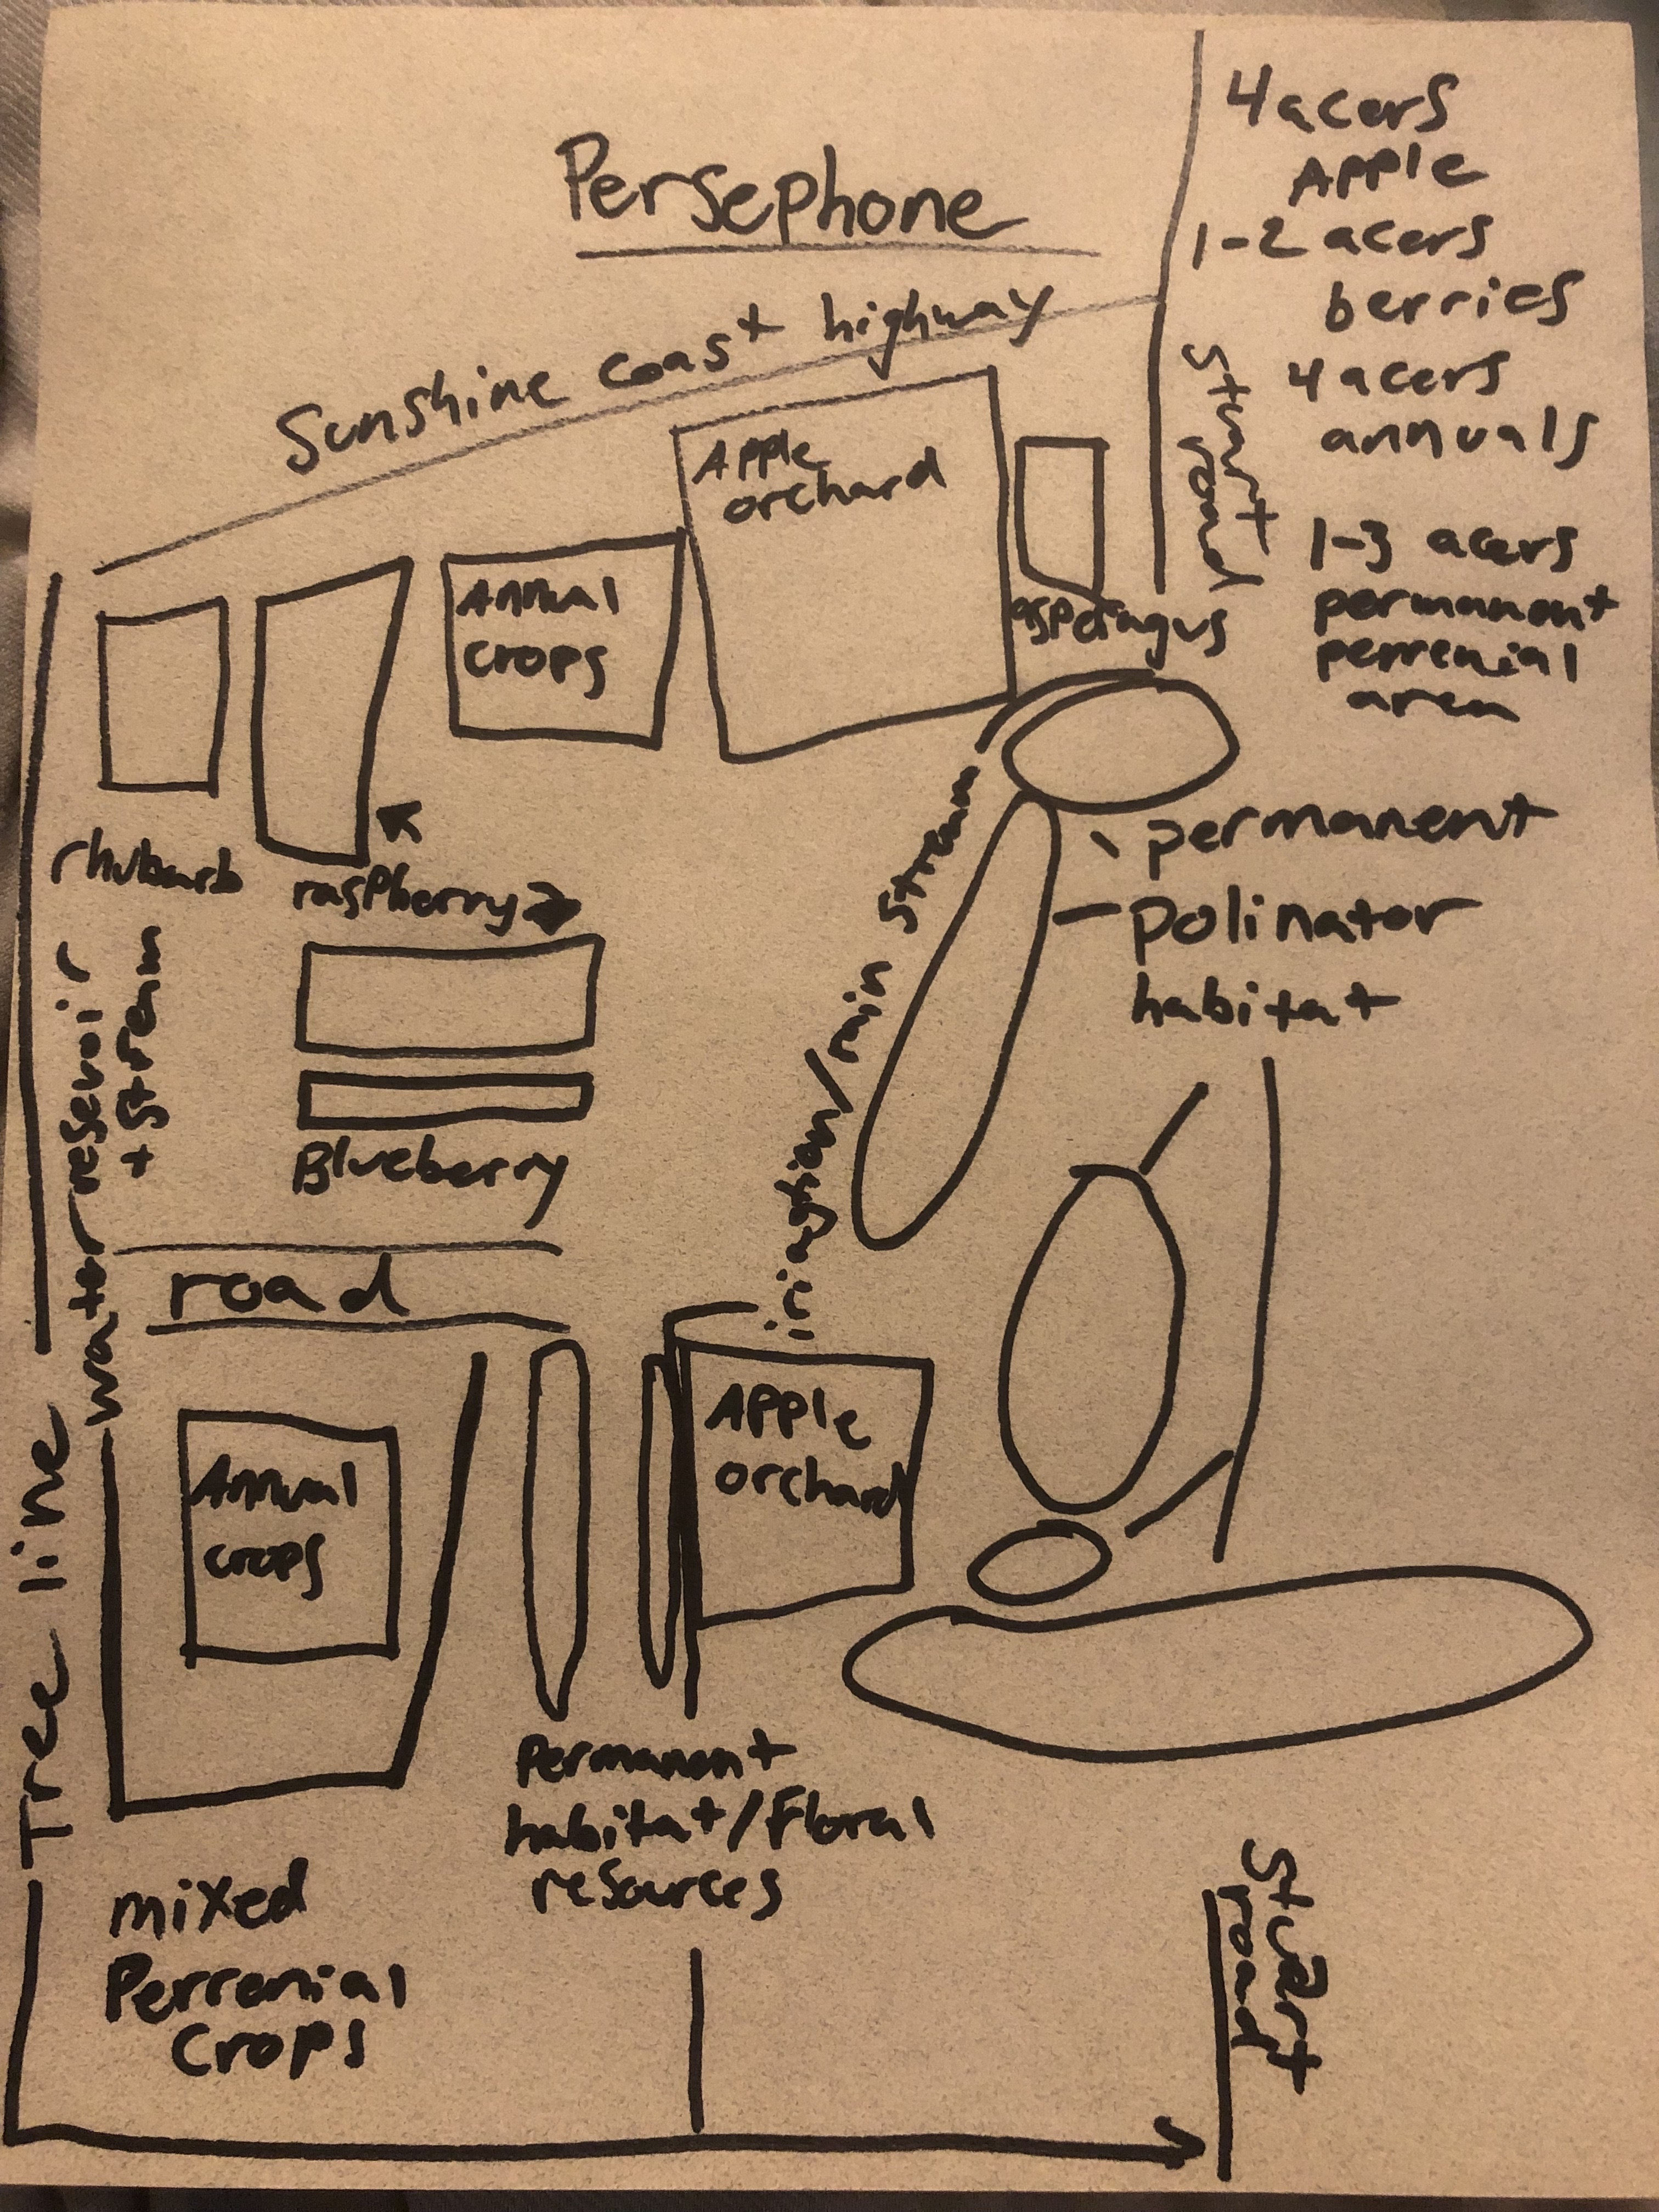 Persephone
4 acers
Apple
1-2 acers
berries
4 acers
annuals
1-3 acers
permanent
perrenial
area
Sunshine coast highway
Stuart
road
Apple
orchard
Annual
crops
asperagus
rhubarb
raspberry
permanent
polinator
habitat
water reservoir
+ stream
Blueberry
road
Apple
orchard
Annual
crops
Tree line
Permanent
habitat/Floral
resources
mixed
Perrenial
Crops
Stuart
road